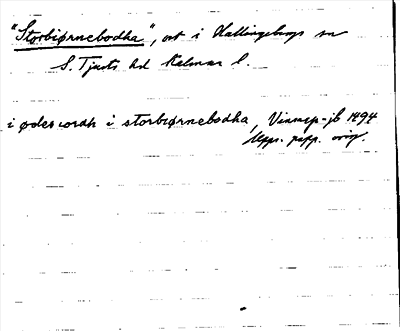 "Storbiørnebodha", ort i Hallingebergs sn
S. Tjusts hd Kalmar l.
i øder iordh i storbiørnebodha, Vinnep-jb 1494
Upps. papp. orig.